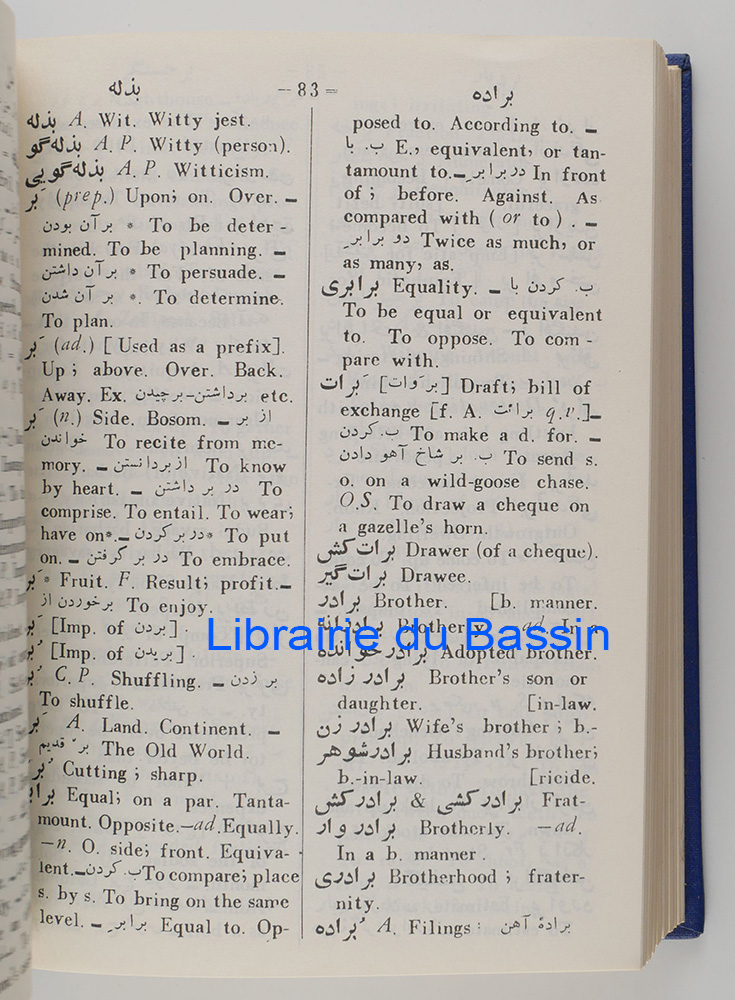 بذله
— 83 —
براده
بذله A. Wit. Witty jest.
بذله‌گو A. P. Witty (person).
بذله‌گویی A. P. Witticism.
بَر (prep.) Upon; on. Over. —
بر آن بودن * To be deter-
mined. To be planning. —
بر آن داشتن * To persuade. —
بر آن شدن *. To determine.
To plan.
بَر (ad.) [ Used as a prefix].
Up ; above. Over. Back.
Away. Ex. برداشتن-برچیدن etc.
بَر (n.) Side. Bosom. — از بر
خواندن To recite from me-
mory. — از بر دانستن To know
by heart. — در بر داشتن To
comprise. To entail. To wear;
have on*.— در بر کردن* To put
on. — در بر گرفتن To embrace.
بَر* Fruit. F. Result; profit.—
برخوردن از To enjoy.
بَر [Imp. of بردن] .
بُر [Imp. of بریدن] .
بُر C. P. Shuffling. — بر زدن
To shuffle.
بَر A. Land. Continent. —
بر قدیم The Old World.
بُر Cutting ; sharp.
برابر Equal; on a par. Tanta-
mount. Opposite.—ad.Equally.
—n. O. side; front. Equiva-
lent.—ب. کردن To compare; place
s. by s. To bring on the same
level. — برابرِ Equal to. Op-
posed to. According to. —
ب. با E., equivalent, or tan-
tamount to.— در برابرِ In front
of ; before. Against. As
compared with ( or to ) . —
دو برابرِ Twice as much, or
as many, as.
برابری Equality. — ب. کردن با
To be equal or equivalent
to. To oppose. To com -
pare with.
برات [بروات] Draft; bill of
exchange [f. A. برائت q.v.]—
ب. کردن To make a d. for. —
ب. بر شاخ آهو دادن To send s.
o. on a wild-goose chase.
O.S. To draw a cheque on
a gazelle's horn.
برات کش Drawer (of a cheque).
برات گیر Drawee.
برادر Brother. [b. manner.
برادرانه Brotherly. —ad. In a
برادر خوانده Adopted brother.
برادر زاده Brother's son or
daughter. [in-law.
برادر زن Wife's brother ; b.-
برادر شوهر Husband's brother;
b.-in-law. [ricide.
برادر کش & برادر کشی Frat-
برادر وار Brotherly. —ad.
In a b. manner .
برادری Brotherhood ; frater-
nity.
براده A. Filings : برادهٔ آهن
Librairie du Bassin